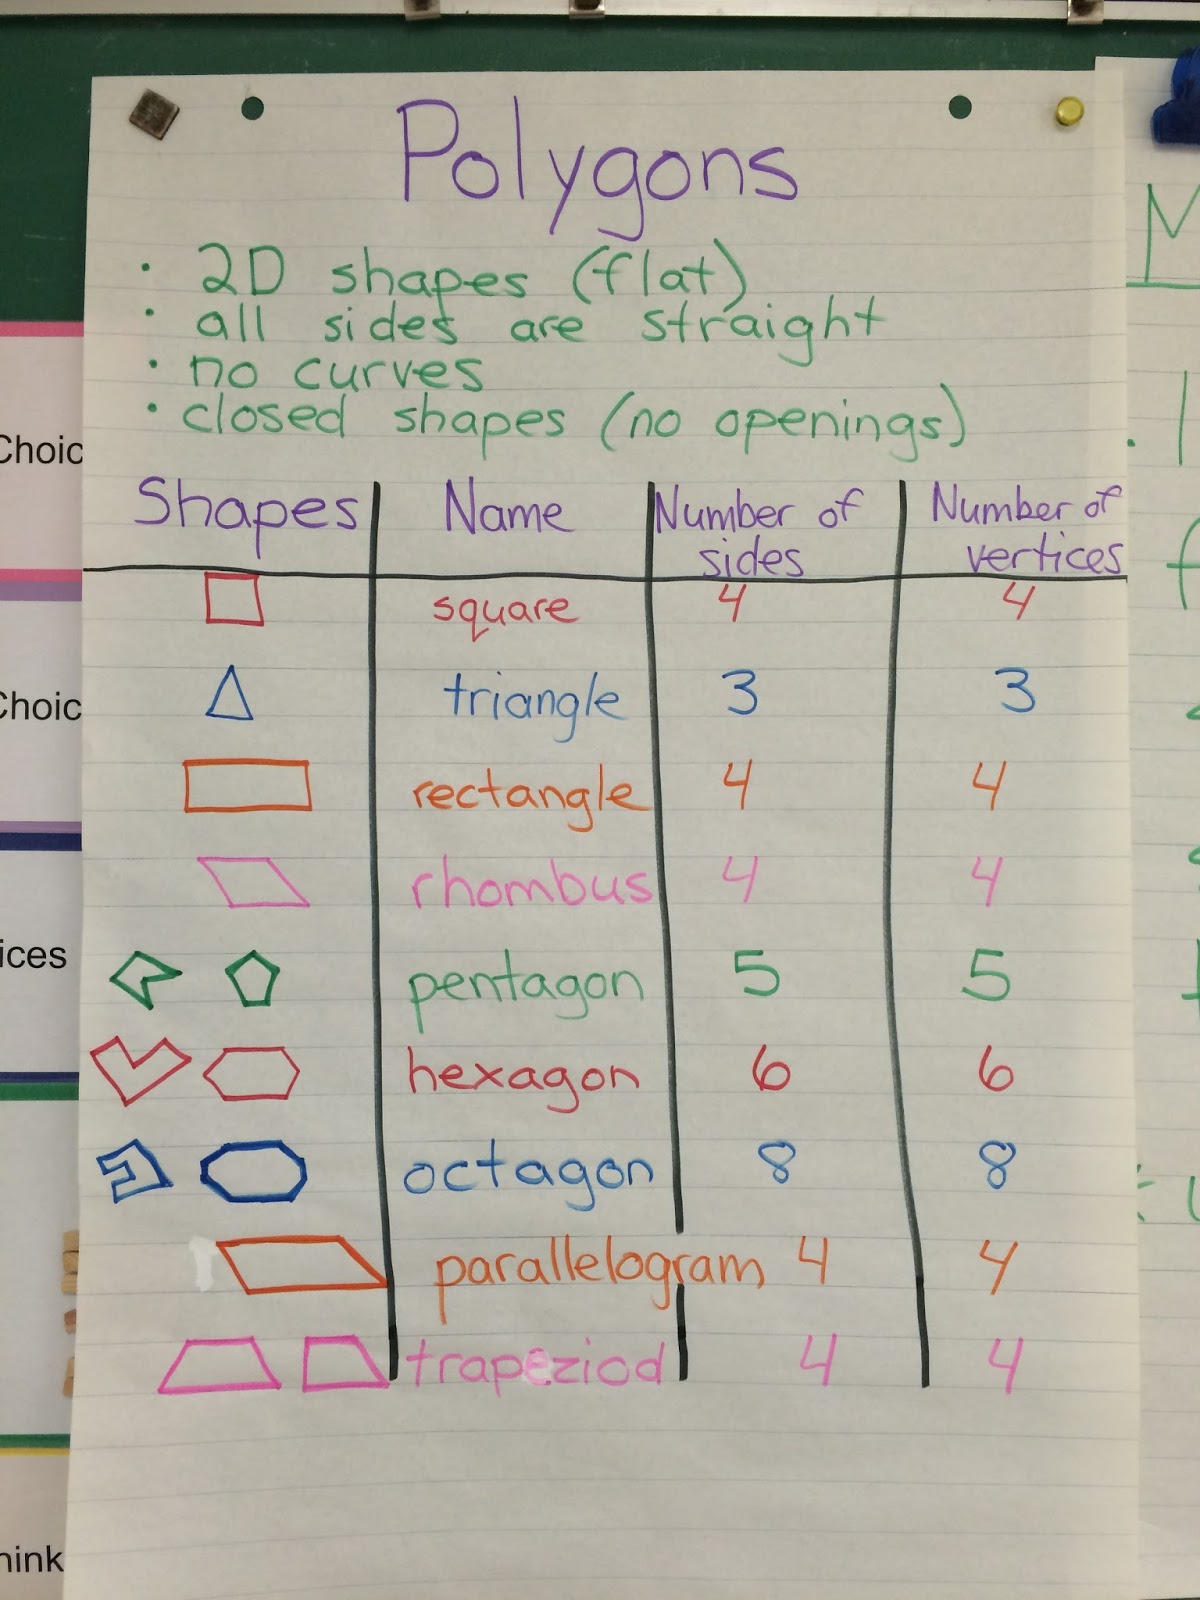 Polygons
· 2D shapes (flat)
· all sides are straight
· no curves
· closed shapes (no openings)
Shapes Name Number of sides Number of vertices
square 4 4
triangle 3 3
rectangle 4 4
rhombus 4 4
pentagon 5 5
hexagon 6 6
octagon 8 8
parallelogram 4 4
trapeziod 4 4
Choic
Choic
ices
hink
M